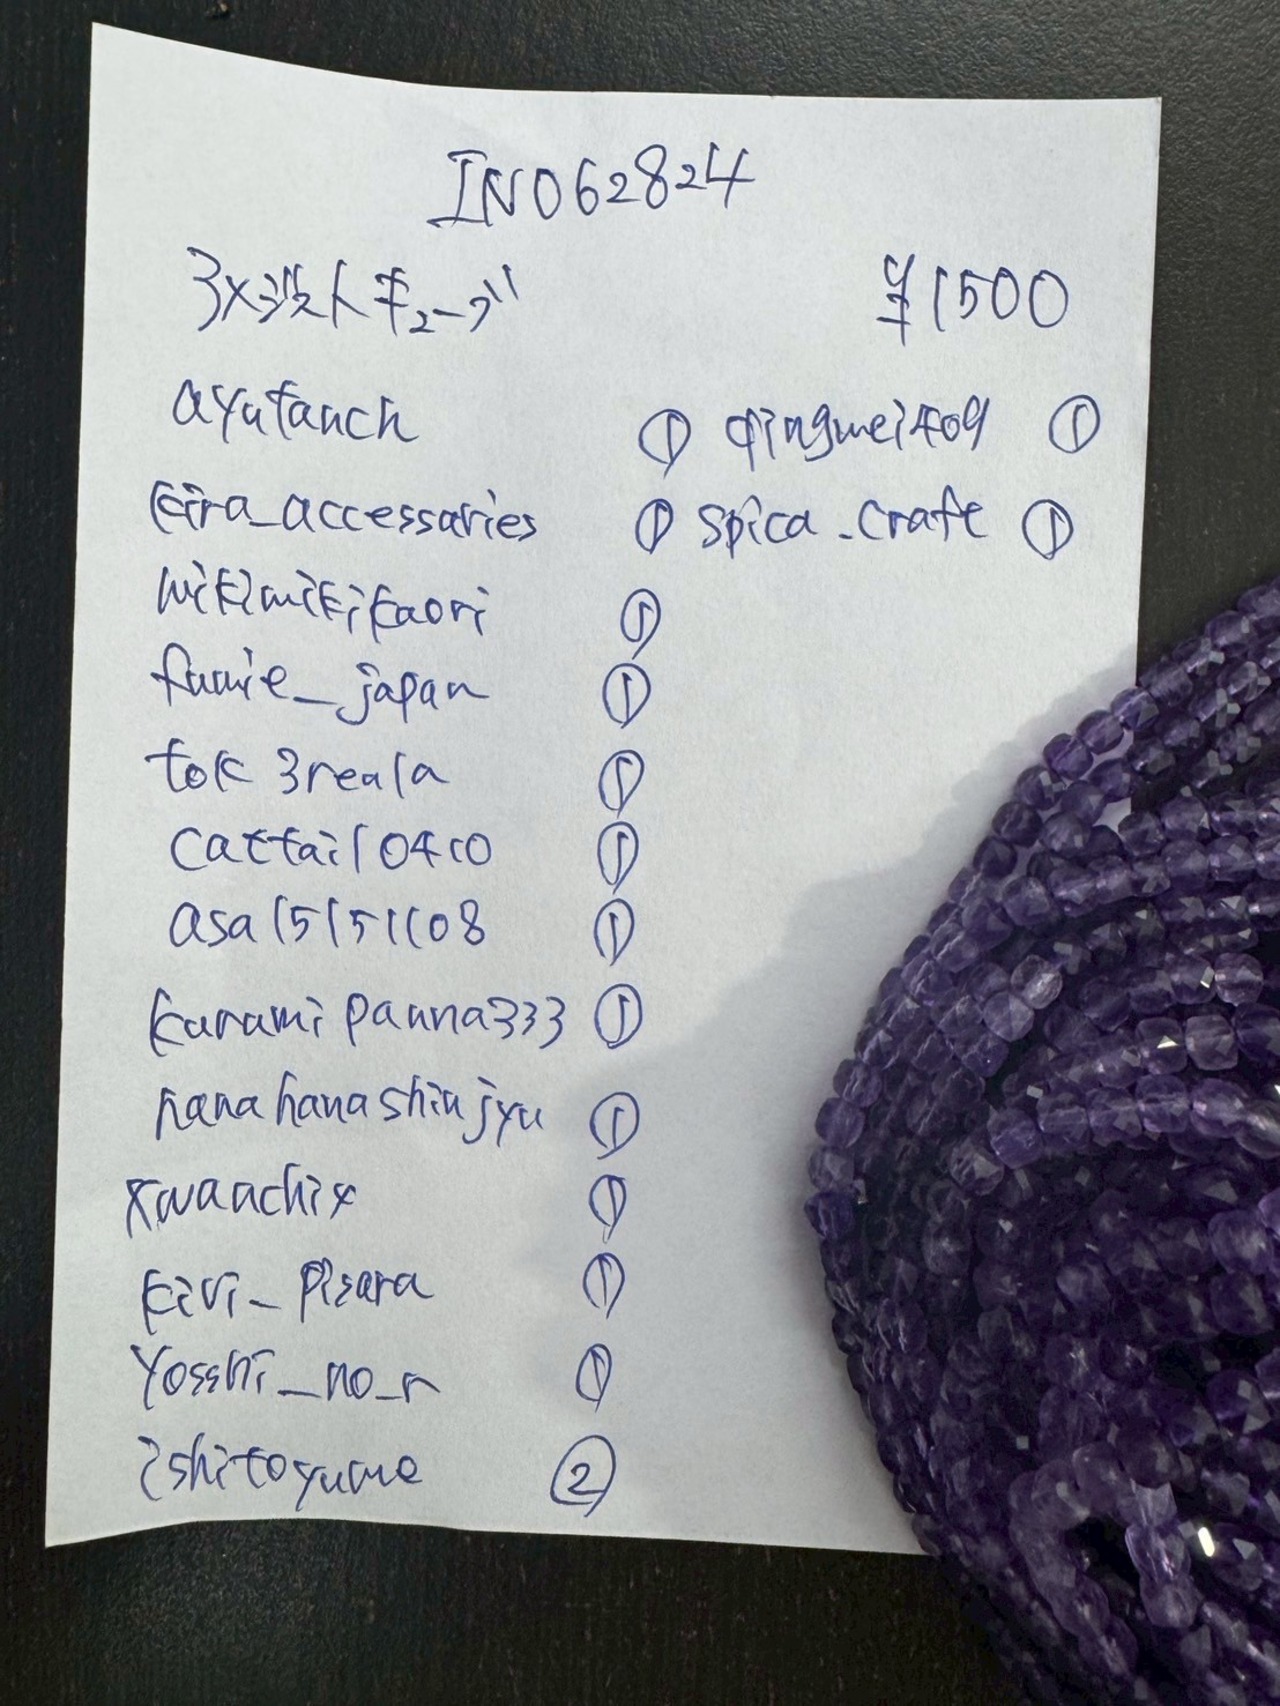 IN062824
¥1500
ayutanch ① qingmei409 ①
kira_accessaries ① spica_craft ①
mikimikikaori ①
fumie_japan ①
tok3reala ①
cattail0410 ①
asa15151108 ①
kurumipanna333 ①
hanahanashinjyu ①
xwaachix ①
kivi_pisara ①
yosshi_no_r ①
ishitoyume ②